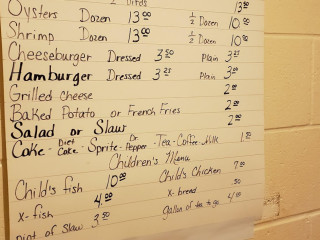 2 Birds
Oysters Dozen 13.00 ½ Dozen 10.00
Shrimp Dozen 13.00 ½ Dozen 10.00
Cheeseburger Dressed 3.50 Plain 3.25
Hamburger Dressed 3.25 Plain 3.00
Grilled cheese 2.00
Baked Potato or French Fries 2.00
Salad or Slaw 2.00
Coke - Diet Coke - Sprite - Dr. Pepper - Tea - Coffee - Milk
Children's Menu
Child's fish 10.00 Child's Chicken
X-fish 4.00 X-bread .50
pint of Slaw 3.50 Gallon of tea to go